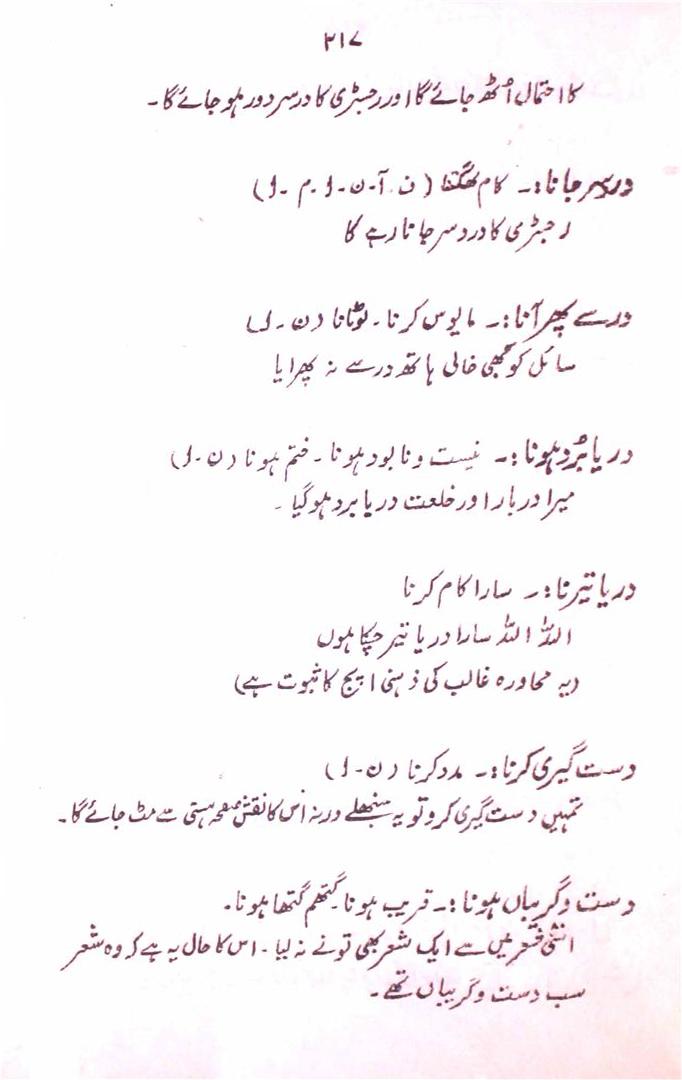 ۲۱۷
کا احتمال اُٹھ جائے گا اور رجسٹری کا دردسر دور ہو جائے گا۔
دردسر جانا:۔ کام بھگتنا (ف۔ آ۔ ن۔ ل۔ م۔ ل)
رجسٹری کا دردسر جاتا رہے گا
در سے پھر آنا:۔ مایوس کرنا۔ لوٹانا (ن۔ ل)
سائل کو کبھی خالی ہاتھ در سے نہ پھرایا
دریا بُرد ہونا:۔ نیست و نابود ہونا۔ ختم ہونا (ن۔ ل)
میرا دربار اور خلعت دریا برد ہو گیا۔
دریا تیرنا:۔ سارا کام کرنا
اللہ اللہ سارا دریا تیر چکا ہوں
(یہ محاورہ غالب کی ذہنی اپج کا ثبوت ہے)
دست گیری کرنا:۔ مدد کرنا (ن۔ ل)
تمہیں دست گیری کرو تو یہ سنبھلے ورنہ اس کا نقش صفحہ ہستی سے مٹ جائے گا۔
دست و گریباں ہونا:۔ قریب ہونا۔ گتھم گتھا ہونا۔
اتنی شعر میں سے ایک شعر بھی تو نے نہ لیا۔ اس کا حال یہ ہے کہ وہ شعر
سب دست و گریباں تھے۔